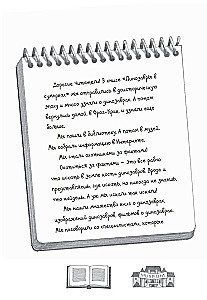 Дорогие читатели! В книге «Динозавры в
сумерках» мы отправились в доисторическую
эпоху и много узнали о динозаврах. А потом
вернулись домой, в Фрог-Крик, и узнали еще
больше.
Мы пошли в библиотеку. А потом в музей.
Мы собрали информацию в Интернете.
Мы стали охотниками за фактами!
Охотиться за фактами – это все равно
что искать в земле кости динозавров. Вроде и
представляешь, где искать, но никогда не знаешь,
что найдешь. А уж мы искали так искали!
Мы нашли множество книг о динозаврах,
изображений динозавров, фильмов о динозаврах.
Мы поговорили со специалистами, которые
MUSEUM